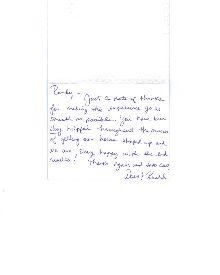 Randy -
Just a note of thanks
for making the experience go as
smooth as possible. You have been
very helpful throughout the process
of getting our house shaped up and
we are very happy with the end
results! Thanks again and take care